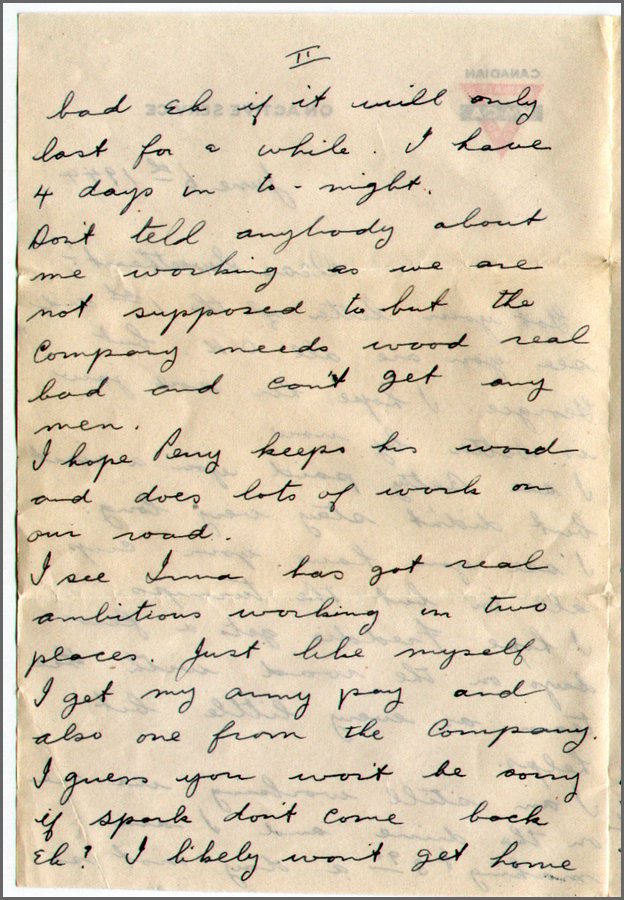 II
bad eh if it will only
last for a while. I have
4 days in to-night.
Don't tell anybody about
me working as we are
not supposed to but the
Company needs wood real
bad and can't get any
men.
I hope Perry keeps his word
and does lots of work on
our road.
I see Inna has got real
ambitious working in two
places. Just like myself
I get my army pay and
also one from the Company.
I guess you won't be sorry
if spark don't come back
Eh? I likely won't get home
CANADIAN
ON ACTIVE SERVICE